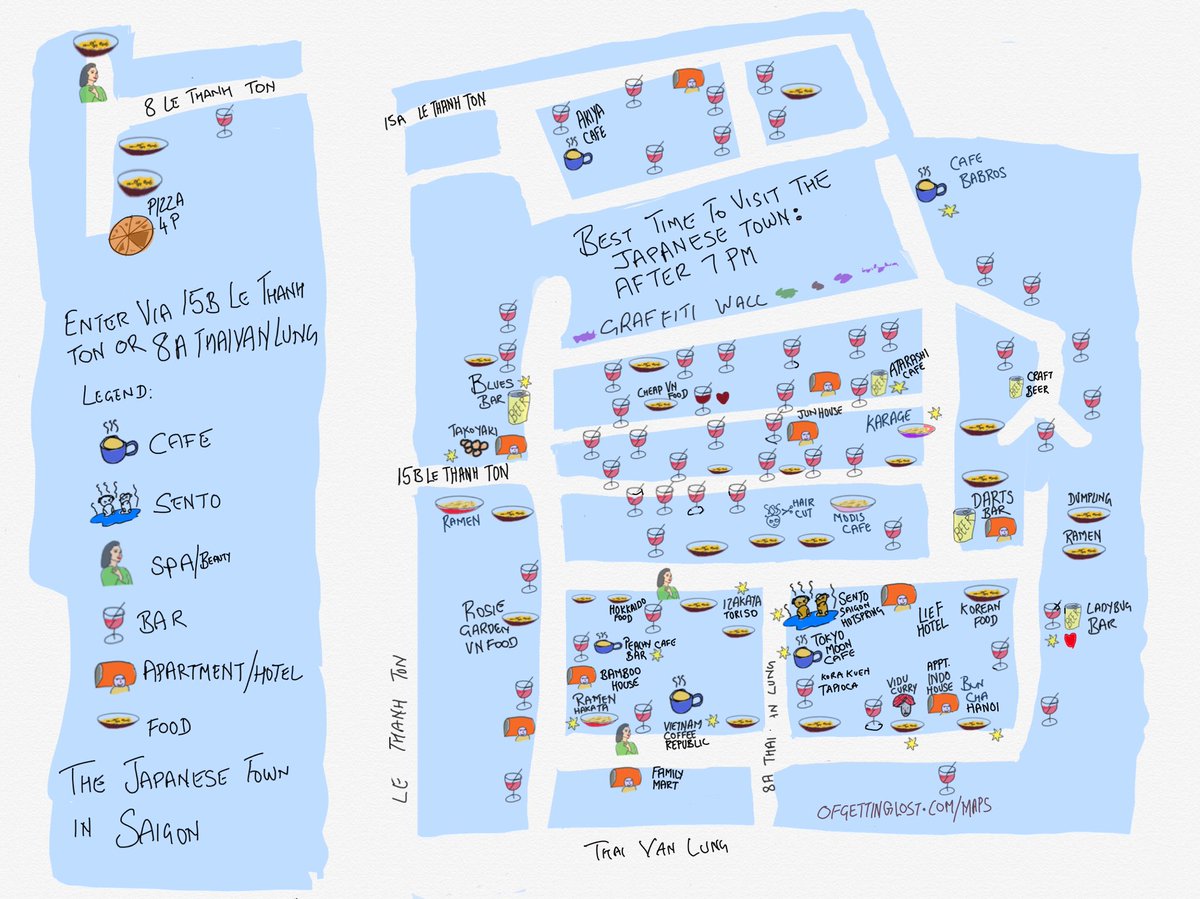 8 LE THANH TON
PIZZA
4P
ENTER VIA 15B LE THANH
TON OR 8A THAIVAN LUNG
LEGEND:
CAFE
SENTO
SPA/BEAUTY
BAR
APARTMENT/HOTEL
FOOD
THE JAPANESE TOWN
IN SAIGON
15A LE THANH TON
AKIYA
CAFE
CAFE
BABROS
BEST TIME TO VISIT THE
JAPANESE TOWN:
AFTER 7 PM
GRAFFITI WALL
BLUES
BAR
BEER
TAKOYAKI
CHEAP VN
FOOD
ATARASHI
CAFE
BEER
JUN HOUSE
KARAGE
CRAFT
BEER
BEER
15B LE THANH TON
RAMEN
HAIR
CUT
MODIS
CAFE
DARTS
BAR
BEER
DUMPLING
RAMEN
ROSIE
GARDEN
VN FOOD
HOKKAIDO
FOOD
IZAKAYA
TORISO
SENTO
SAIGON
HOTSPRING
LIEF
HOTEL
KOREAN
FOOD
LADYBUG
BAR
BEER
PEACH CAFE
BAR
TOKYO
MOON
CAFE
BAMBOO
HOUSE
KORA KUEN
TAPIOCA
VIDU
CURRY
APPT.
INDO
HOUSE
BUN
CHA
HANOI
RAMEN
HAKATA
VIETNAM
COFFEE
REPUBLIC
LE THANH TON
8A THAI. IN LUNG
FAMILY
MART
OFGETTINGLOST.COM/MAPS
THAI VAN LUNG